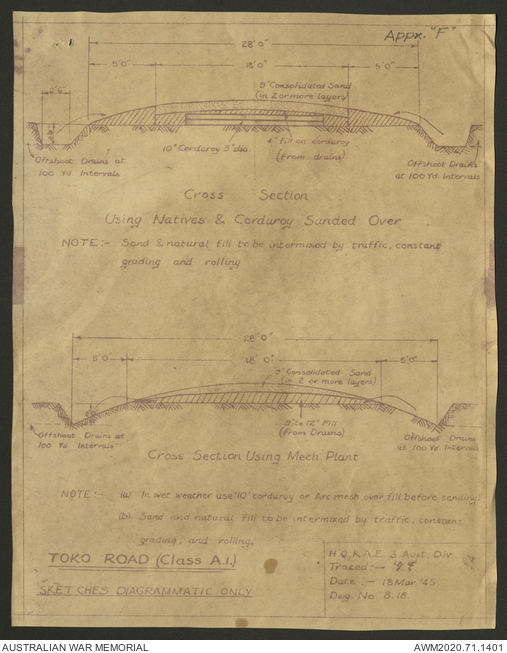 Appx. "F"
28' 0"
5' 0" 18' 0" 5' 0"
9" Consolidated Sand
(in 2 or more layers)
2' 6"
4" fill on corduroy
(from drains)
10" Corduroy 5" dia.
Offshoot Drains at
100 Yd. Intervals
Offshoot Drains
at 100 Yd. Intervals
Cross Section
Using Natives & Corduroy Sanded Over
NOTE:- Sand & natural fill to be intermixed by traffic, constant
grading and rolling
28' 0"
5' 0" 18' 0" 5' 0"
Consolidated Sand
(in 2 or more layers)
9" to 12" Fill
(From Drains)
Offshoot Drains at
100 Yd. Intervals
Offshoot Drains
at 100 Yd. Intervals
Cross Section Using Mech. Plant
NOTE:- (a) In wet weather use 10' corduroy or Arc mesh over fill before sanding.
(b) Sand and natural fill to be intermixed by traffic, constant
grading, and rolling.
TOKO ROAD (Class A.I.)
SKETCHES DIAGRAMMATIC ONLY
H.Q.R.A.E. 3 Aust. Div.
Traced:-
Date:- 18 Mar. '45
Dwg. No. B.18.
AUSTRALIAN WAR MEMORIAL
AWM2020.71.1401